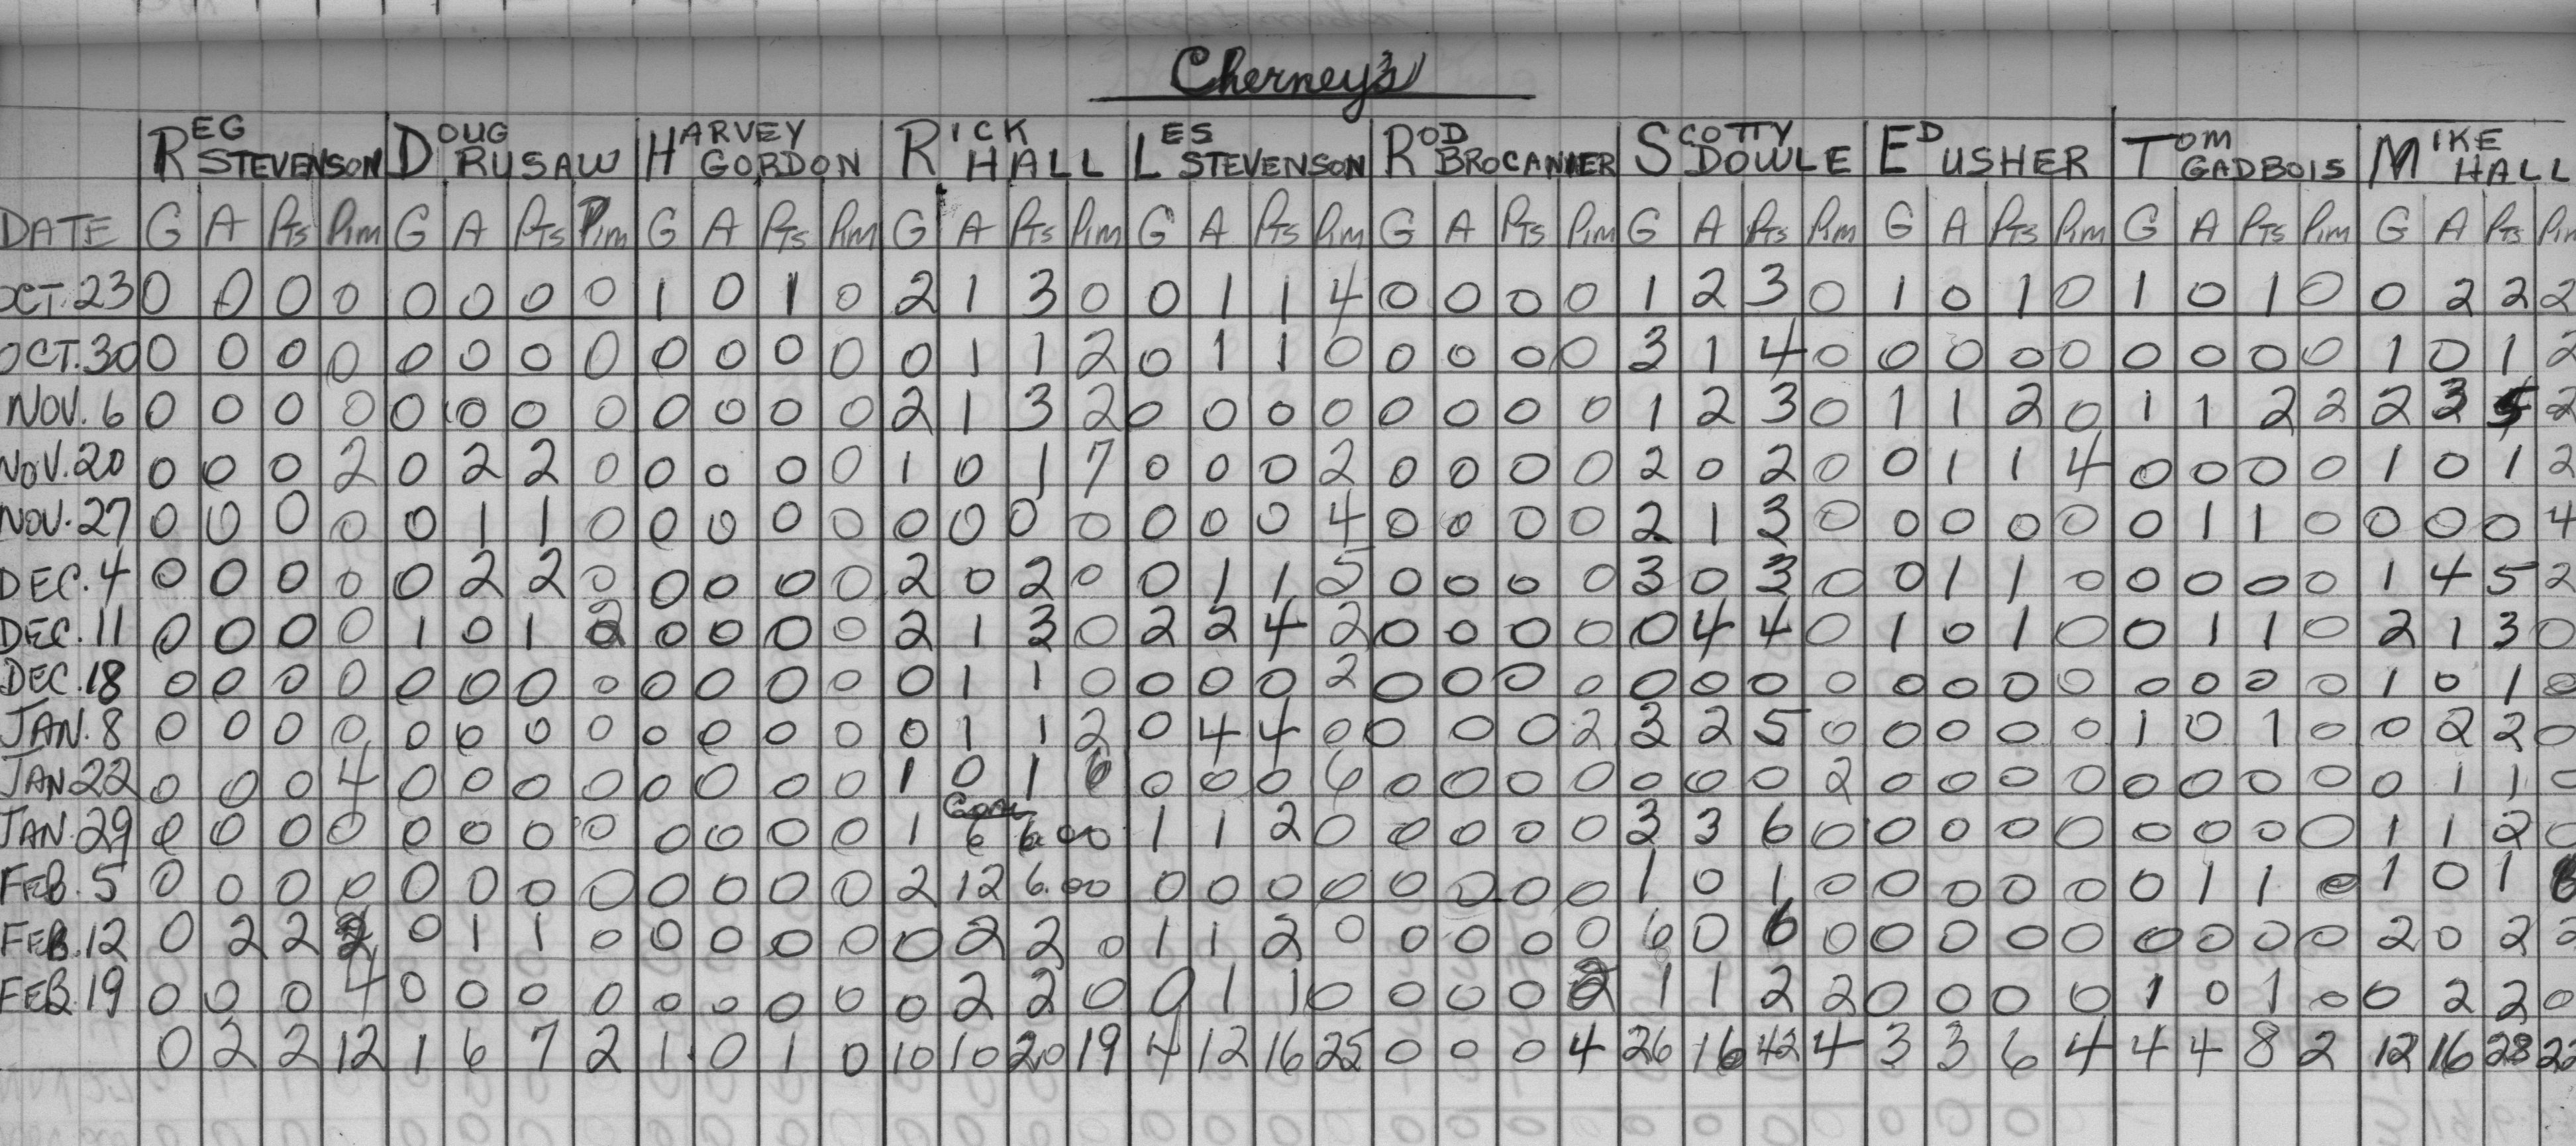 Cherney's
REG STEVENSON DOUG RUSAW HARVEY GORDON RICK HALL LES STEVENSON ROD BROCANIER SCOTTY DOWLE ED USHER TOM GADBOIS MIKE HALL
DATE G A PTS PIM G A PTS PIM G A PTS PIM G A PTS PIM G A PTS PIM G A PTS PIM G A PTS PIM G A PTS PIM G A PTS PIM G A PTS PIM
OCT. 23 0 0 0 0 0 0 0 0 1 0 1 0 2 1 3 0 0 1 1 4 0 0 0 0 1 2 3 0 1 0 1 0 1 0 1 0 0 2 2 2
OCT. 30 0 0 0 0 0 0 0 0 0 0 0 0 0 1 1 2 0 1 1 0 0 0 0 0 3 1 4 0 0 0 0 0 0 0 0 0 1 0 1 2
NOV. 6 0 0 0 0 0 0 0 0 0 0 0 0 2 1 3 2 0 0 0 0 0 0 0 0 1 2 3 0 1 1 2 0 1 1 2 2 2 3 5 2
NOV. 20 0 0 0 2 0 2 2 0 0 0 0 0 1 0 1 7 0 0 0 2 0 0 0 0 2 0 2 0 0 1 1 4 0 0 0 0 1 0 1 2
NOV. 27 0 0 0 0 0 1 1 0 0 0 0 0 0 0 0 0 0 0 0 4 0 0 0 0 2 1 3 0 0 0 0 0 0 1 1 0 0 0 0 4
DEC. 4 0 0 0 0 0 2 2 0 0 0 0 0 2 0 2 0 0 1 1 5 0 0 0 0 3 0 3 0 0 1 1 0 0 0 0 0 1 4 5 2
DEC. 11 0 0 0 0 1 0 1 2 0 0 0 0 2 1 3 0 2 2 4 2 0 0 0 0 0 4 4 0 1 0 1 0 0 1 1 0 2 1 3 0
DEC. 18 0 0 0 0 0 0 0 0 0 0 0 0 0 1 1 0 0 0 0 2 0 0 0 0 0 0 0 0 0 0 0 0 0 0 0 0 1 0 1 0
JAN. 8 0 0 0 0 0 0 0 0 0 0 0 0 0 1 1 2 0 4 4 0 0 0 0 2 3 2 5 0 0 0 0 0 1 0 1 0 0 2 2 0
JAN 22 0 0 0 4 0 0 0 0 0 0 0 0 1 0 1 6 0 0 0 6 0 0 0 0 0 0 0 2 0 0 0 0 0 0 0 0 0 1 1 0
JAN. 29 0 0 0 0 0 0 0 0 0 0 0 0 1 6 6.00 1 1 2 0 0 0 0 0 3 3 6 0 0 0 0 0 0 0 0 0 1 1 2 0
FEB. 5 0 0 0 0 0 0 0 0 0 0 0 0 2 12 6.00 0 0 0 0 0 0 0 0 1 0 1 0 0 0 0 0 0 1 1 0 1 0 1 6
FEB. 12 0 2 2 2 0 1 1 0 0 0 0 0 0 2 2 0 1 1 2 0 0 0 0 0 6 0 6 0 0 0 0 0 0 0 0 0 2 0 2 2
FEB. 19 0 0 0 4 0 0 0 0 0 0 0 0 0 2 2 0 0 1 1 0 0 0 0 2 1 1 2 2 0 0 0 0 1 0 1 0 0 2 2 0
0 2 2 12 1 6 7 2 1 0 1 0 10 10 20 19 4 12 16 25 0 0 0 4 26 16 42 4 3 3 6 4 4 4 8 2 12 16 28 22